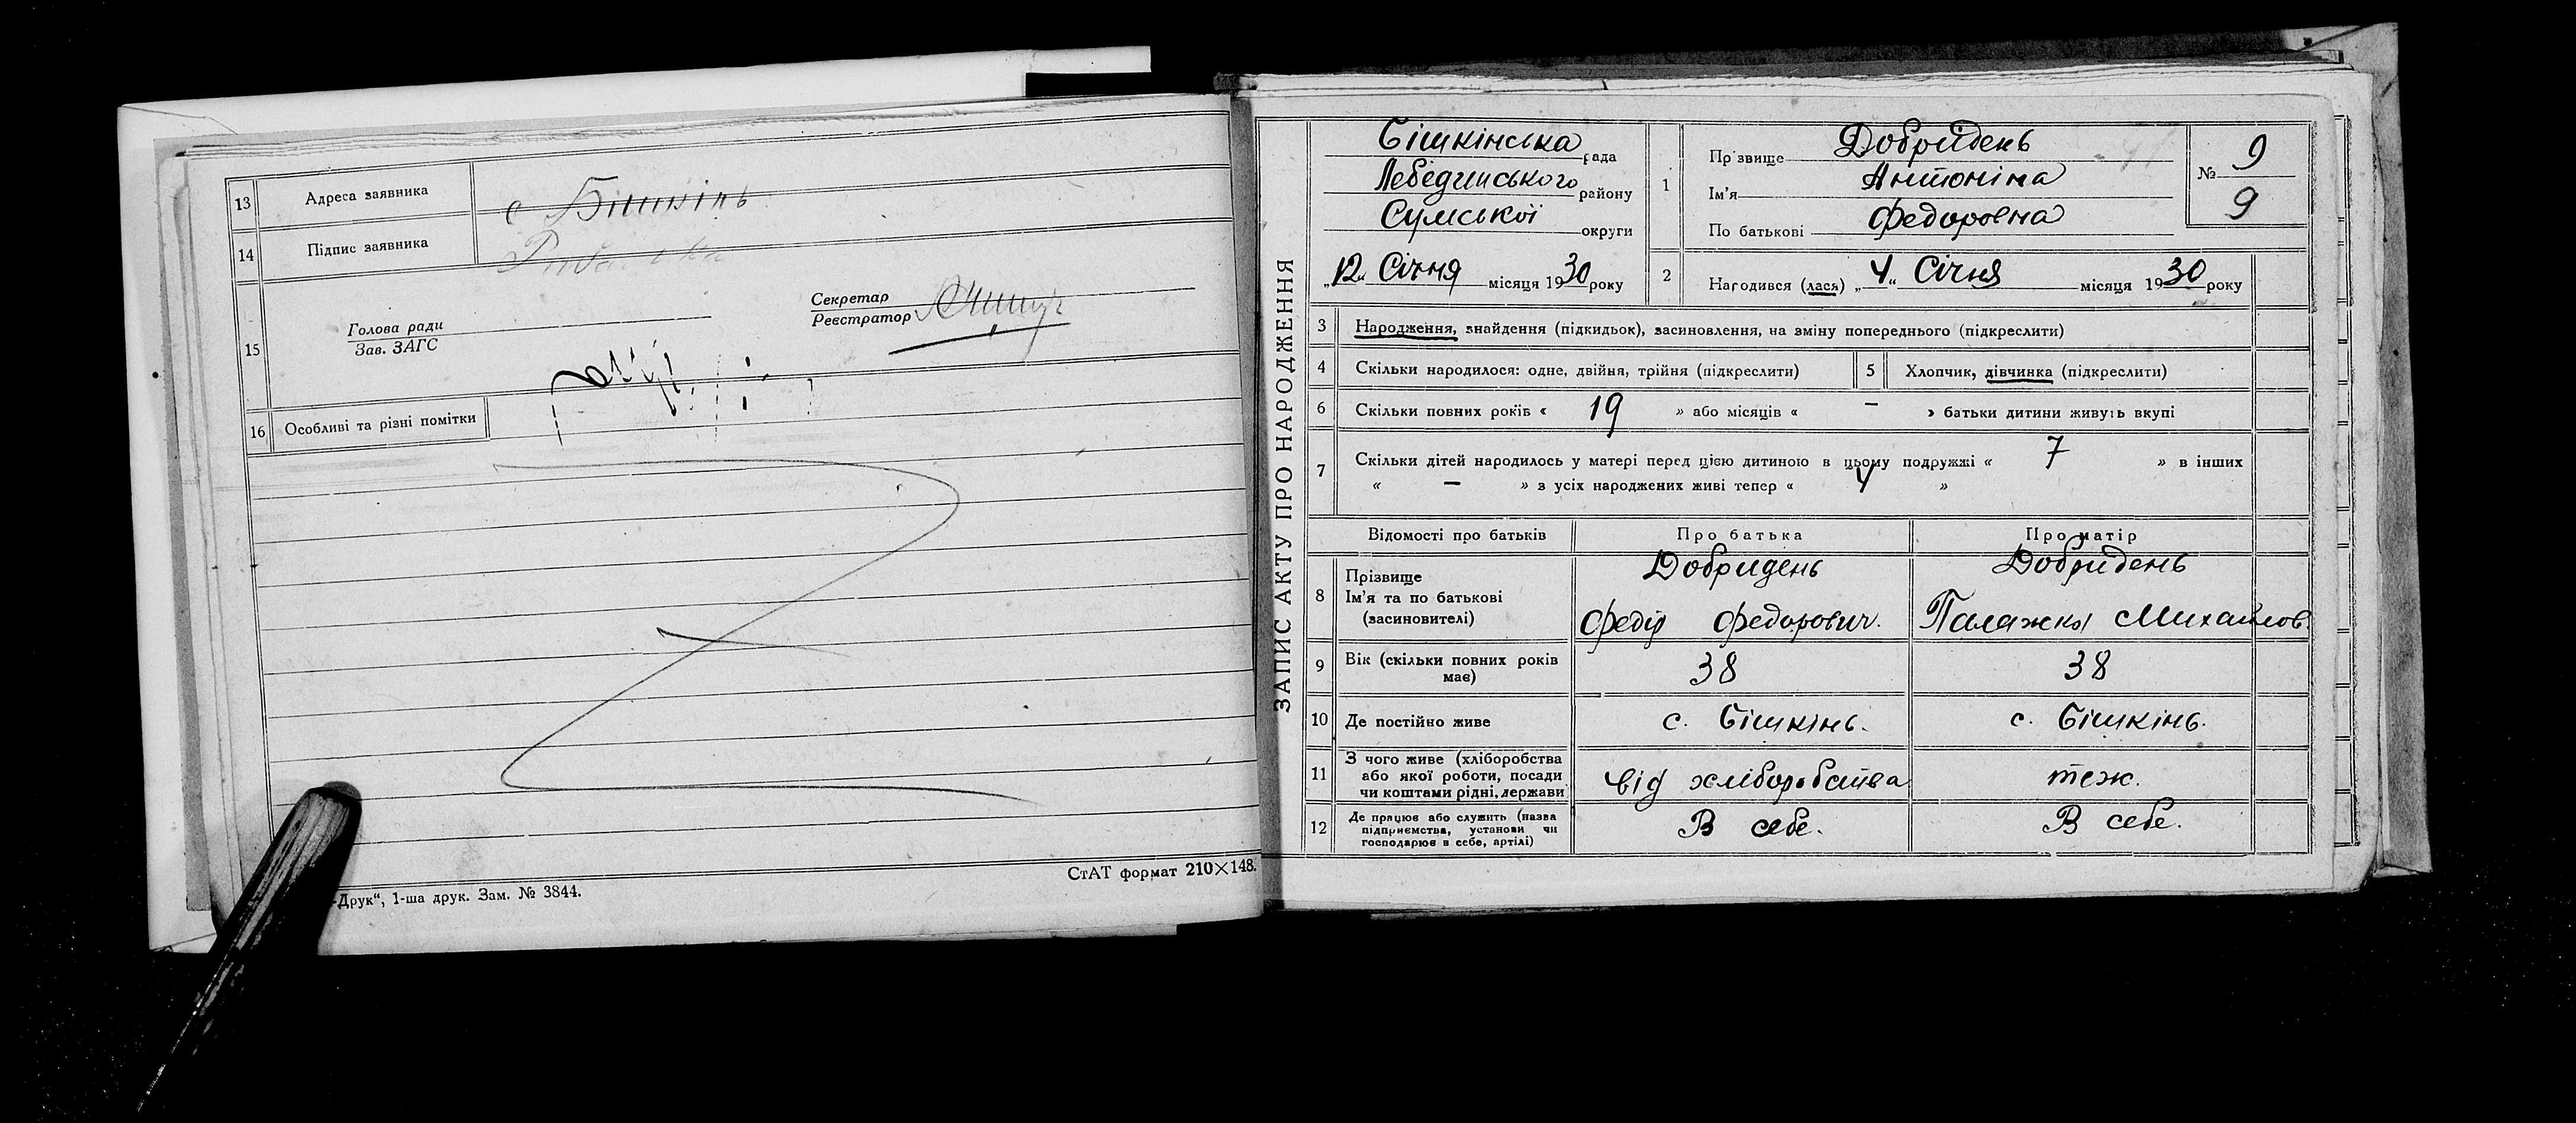 13 Адреса заявника с Бішкінь
14 Підпис заявника
15 Голова ради
Зав. ЗАГС
Секретар
Реєстратор
16 Особливі та різні помітки
-Друк“, 1-ша друк. Зам. № 3844.
СтАТ формат 210×148.
ЗАПИС АКТУ ПРО НАРОДЖЕННЯ
Бішкінська рада
Лебединського району
Сумської округи
„12“ Січня місяця 1930 року
1 Прізвище Добридень
Ім’я Антоніна
По батькові Федоровна
№ 9
9
2 Народився (лася) „4“ Січня місяця 1930 року
3 Народження, знайдення (підкидьок), засиновлення, на зміну попереднього (підкреслити)
4 Скільки народилося: одне, двійня, трійня (підкреслити) 5 Хлопчик, дівчинка (підкреслити)
6 Скільки повних років « 19 » або місяців « – » батьки дитини живуть вкупі
7 Скільки дітей народилось у матері перед цією дитиною в цьому подружжі « 7 » в інших
« – » з усіх народжених живі тепер « 4 »
Відомості про батьків Про батька Про матір
8 Прізвище Добридень Добридень
Ім’я та по батькові Федір Федорович. Палажка Михайлов.
(засиновителі)
9 Вік (скільки повних років має) 38 38
10 Де постійно живе с. Бішкінь. с. Бішкінь.
11 З чого живе (хліборобства
або якої роботи, посади від хліборобства теж.
чи коштами рідні, держави
12 Де працює або служить (назва
підприємства, установи чи В себе. В себе.
господарює в себе, артілі)